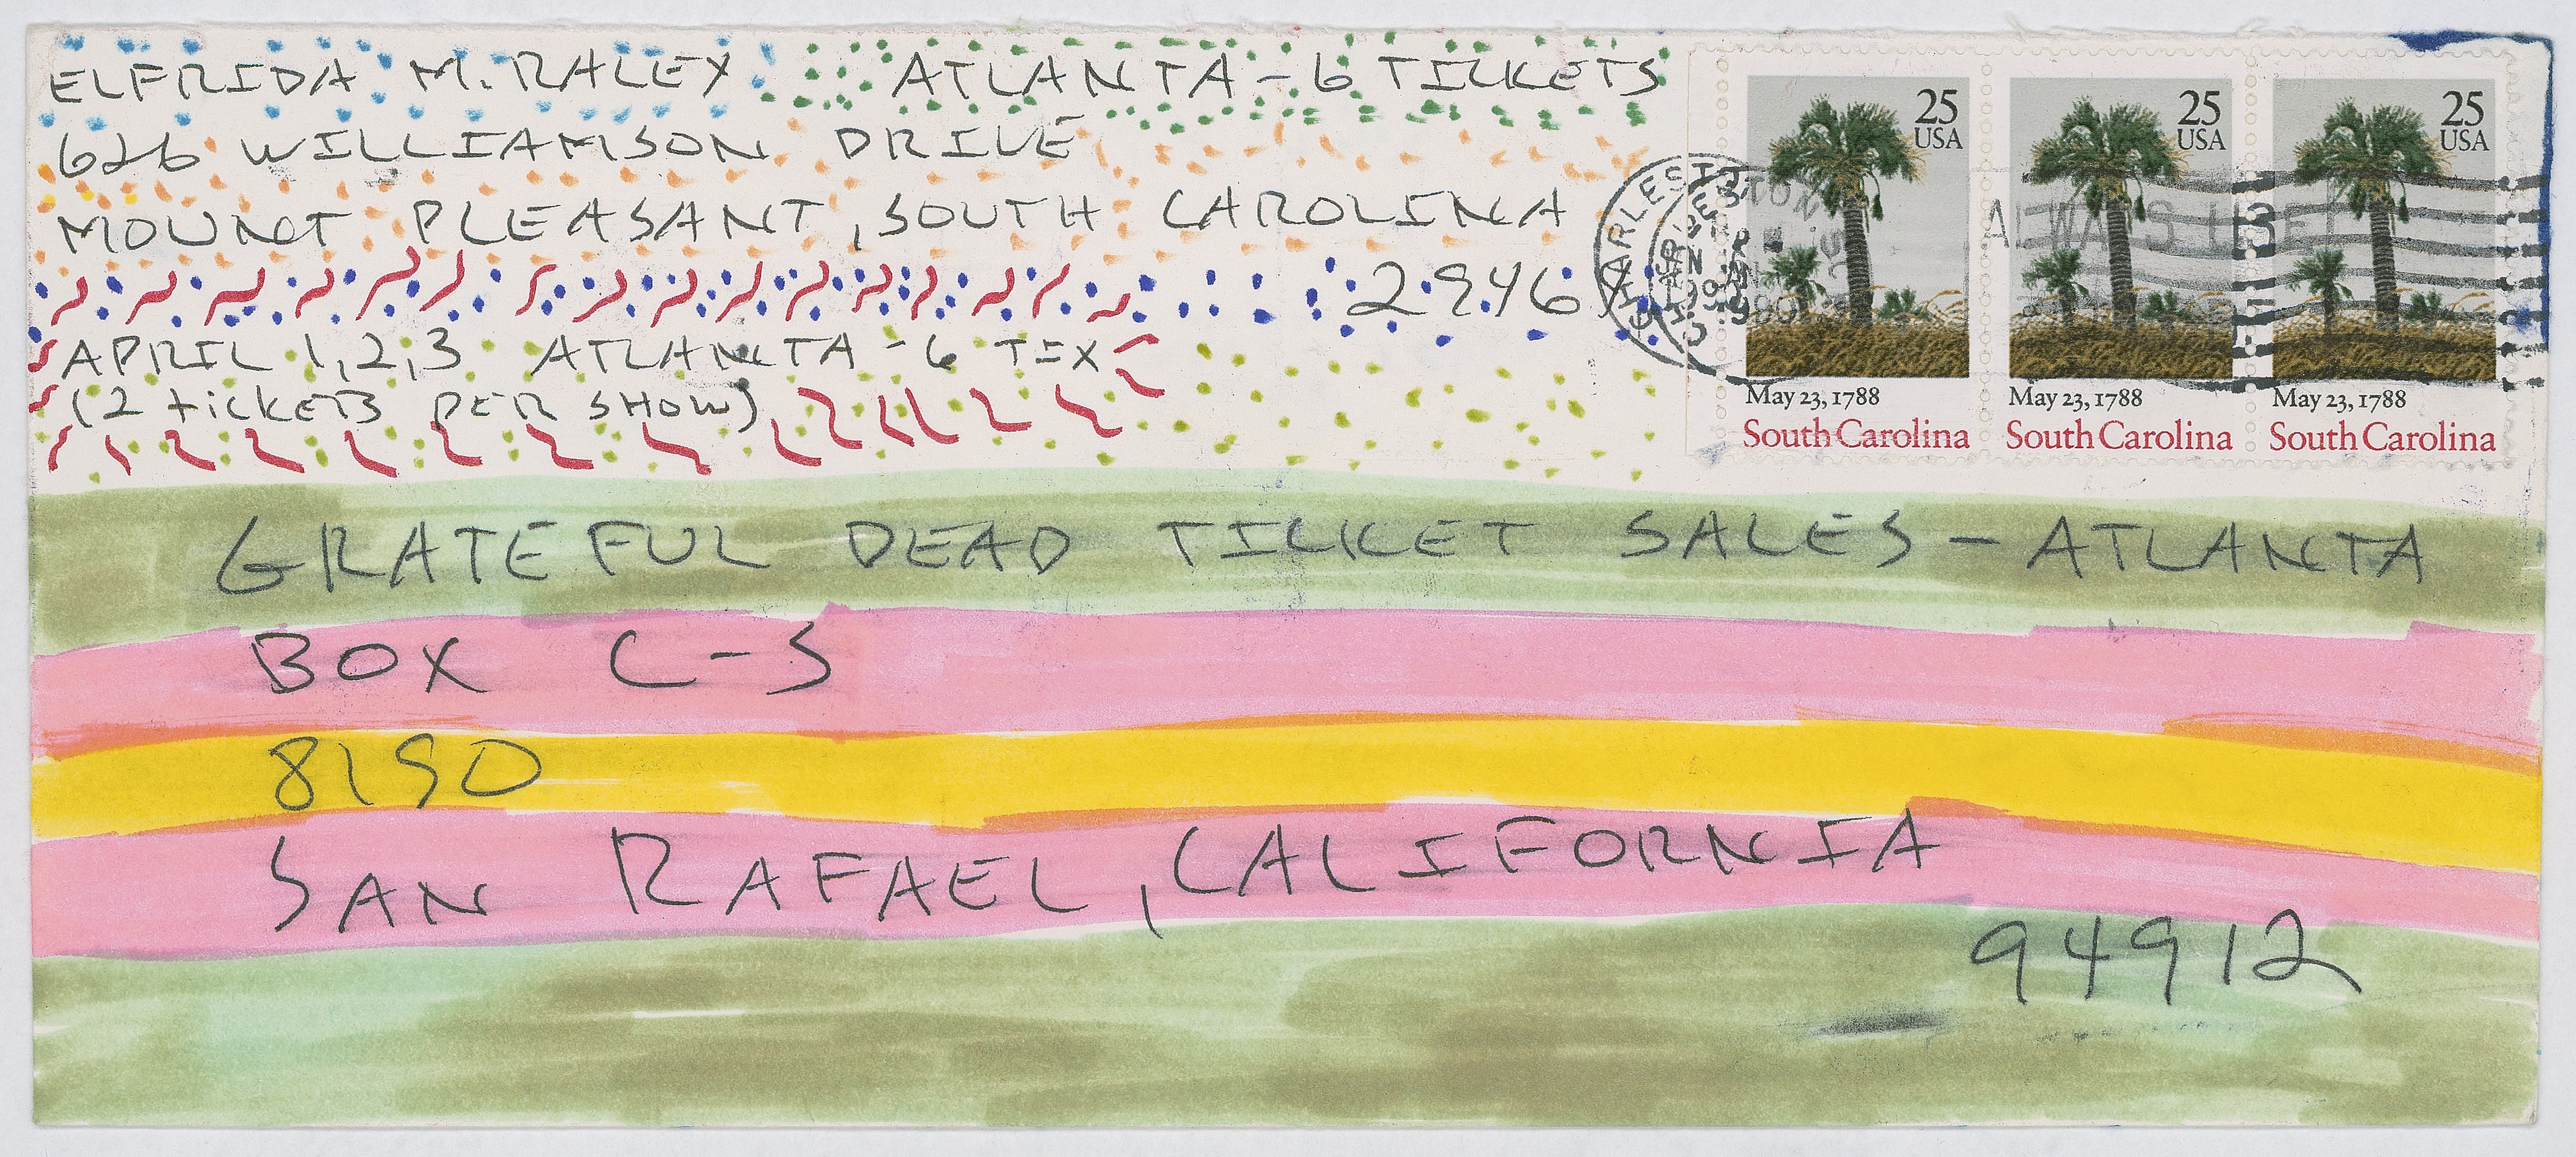 ELFRIDA M. RALEY ATLANTA - 6 TICKETS
626 WILLIAMSON DRIVE
MOUNT PLEASANT, SOUTH CAROLINA
2946
APRIL 1,2,3 ATLANTA - 6 TIX
(2 tickets PER SHOW)
25 USA
May 23, 1788
South Carolina
25 USA
May 23, 1788
South Carolina
25 USA
May 23, 1788
South Carolina
CHARLESTON
ALWAYS USE
GRATEFUL DEAD TICKET SALES - ATLANTA
BOX C-S
8190
SAN RAFAEL, CALIFORNIA
94912